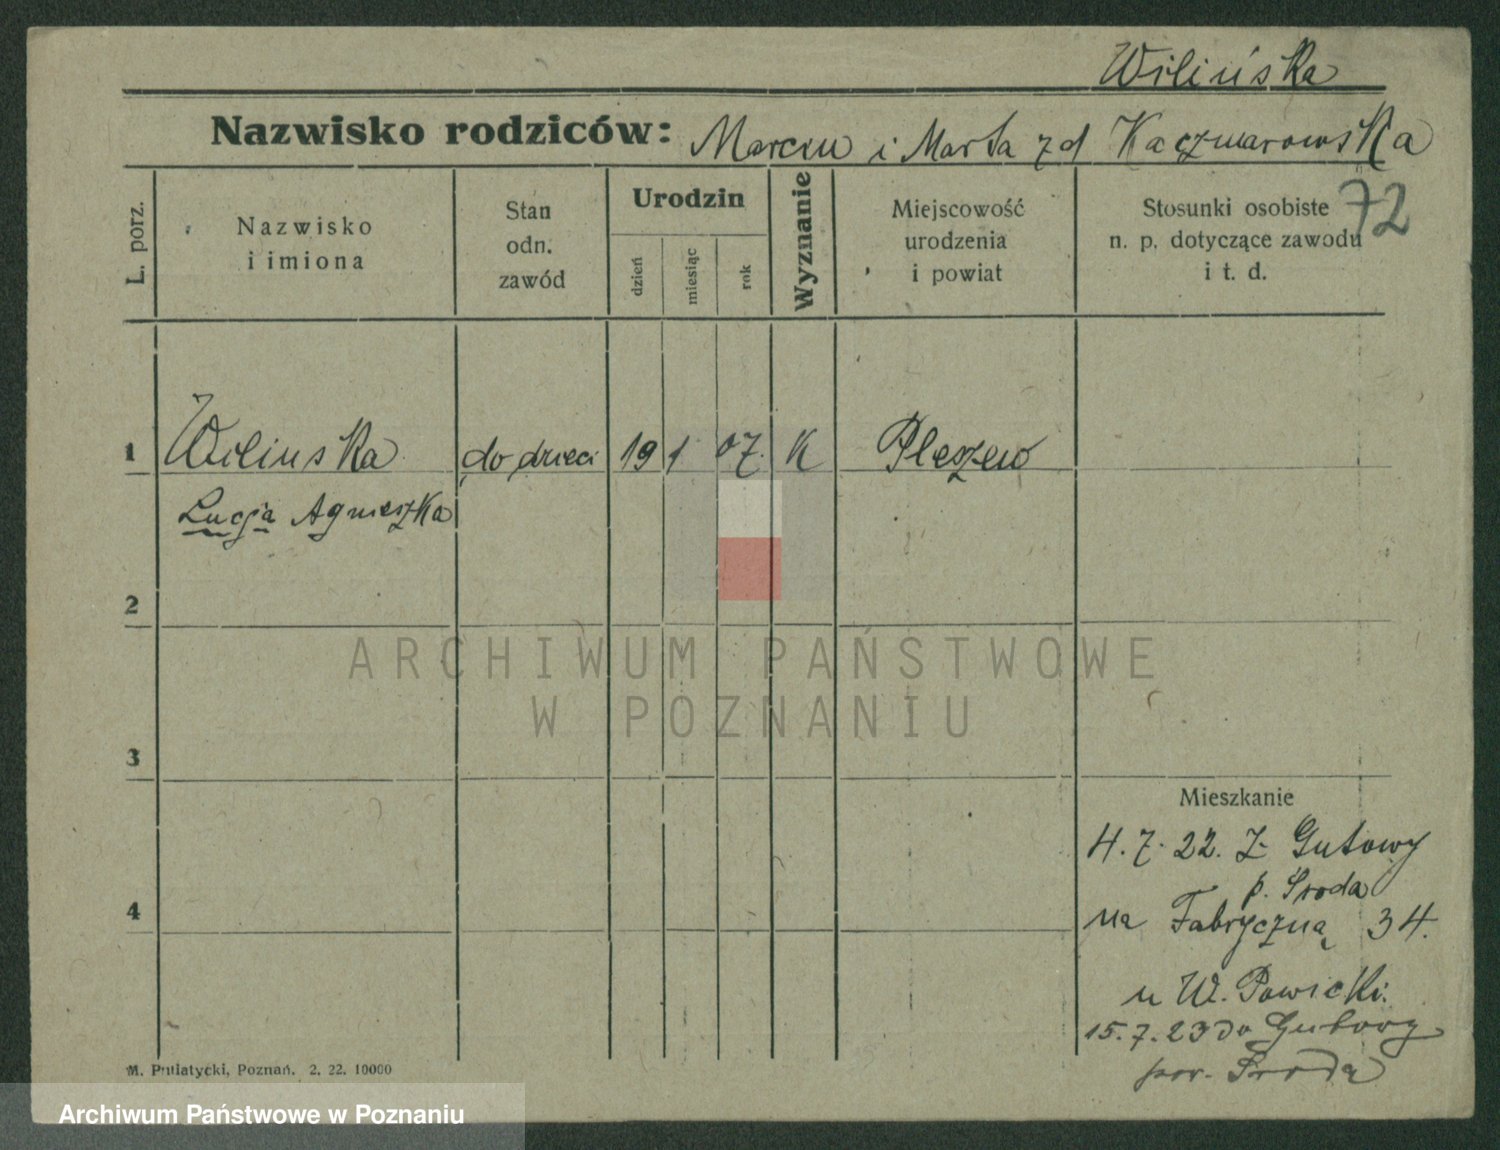 Wilińska
Nazwisko rodziców: Marcin i Marta zd Kaczmarowska
72
L. porz.
Nazwisko
i imiona
Stan
odn.
zawód
Urodzin
dzień
miesiąc
rok
Wyznanie
Miejscowość
urodzenia
i powiat
Stosunki osobiste
n. p. dotyczące zawodu
i t. d.
1 Wilinska do dzieci 19 1 07. K Pleszew
Łucja Agnieszka
2
ARCHIWUM PAŃSTWOWE
W POZNANIU
3
Mieszkanie
4. 7. 22. z Gutowy
p. Środa
4
na Fabryczną 34.
u W. Pawicki.
15. 7. 23 do Gutowy
pow. Środa
M. Putiatycki, Poznań. 2. 22. 10000
Archiwum Państwowe w Poznaniu